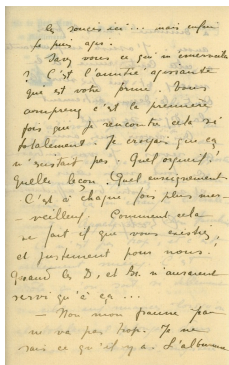 les songes ici ... mais enfin
je puis agir.
Savez vous ce qui m'émerveille
? C'est l'amitié agissante
que est votre                . Vous
comprenez c'est la première
fois que je rencontre cela si
totalement. Je croyais que ça
n'existait pas. Quel orgueil.
Quelle leçon. Quel enseignement.
C'est à chaque fois plus mer-
veilleux. Comment cela
se fait il que vous existiez
et justement pour nous.
Quand les D. et Br. n'auraient
servi qu'à ça ...
— Non mon                pan
ne va pas trop. Je ne
sais ce qu'il y a. L'albumine